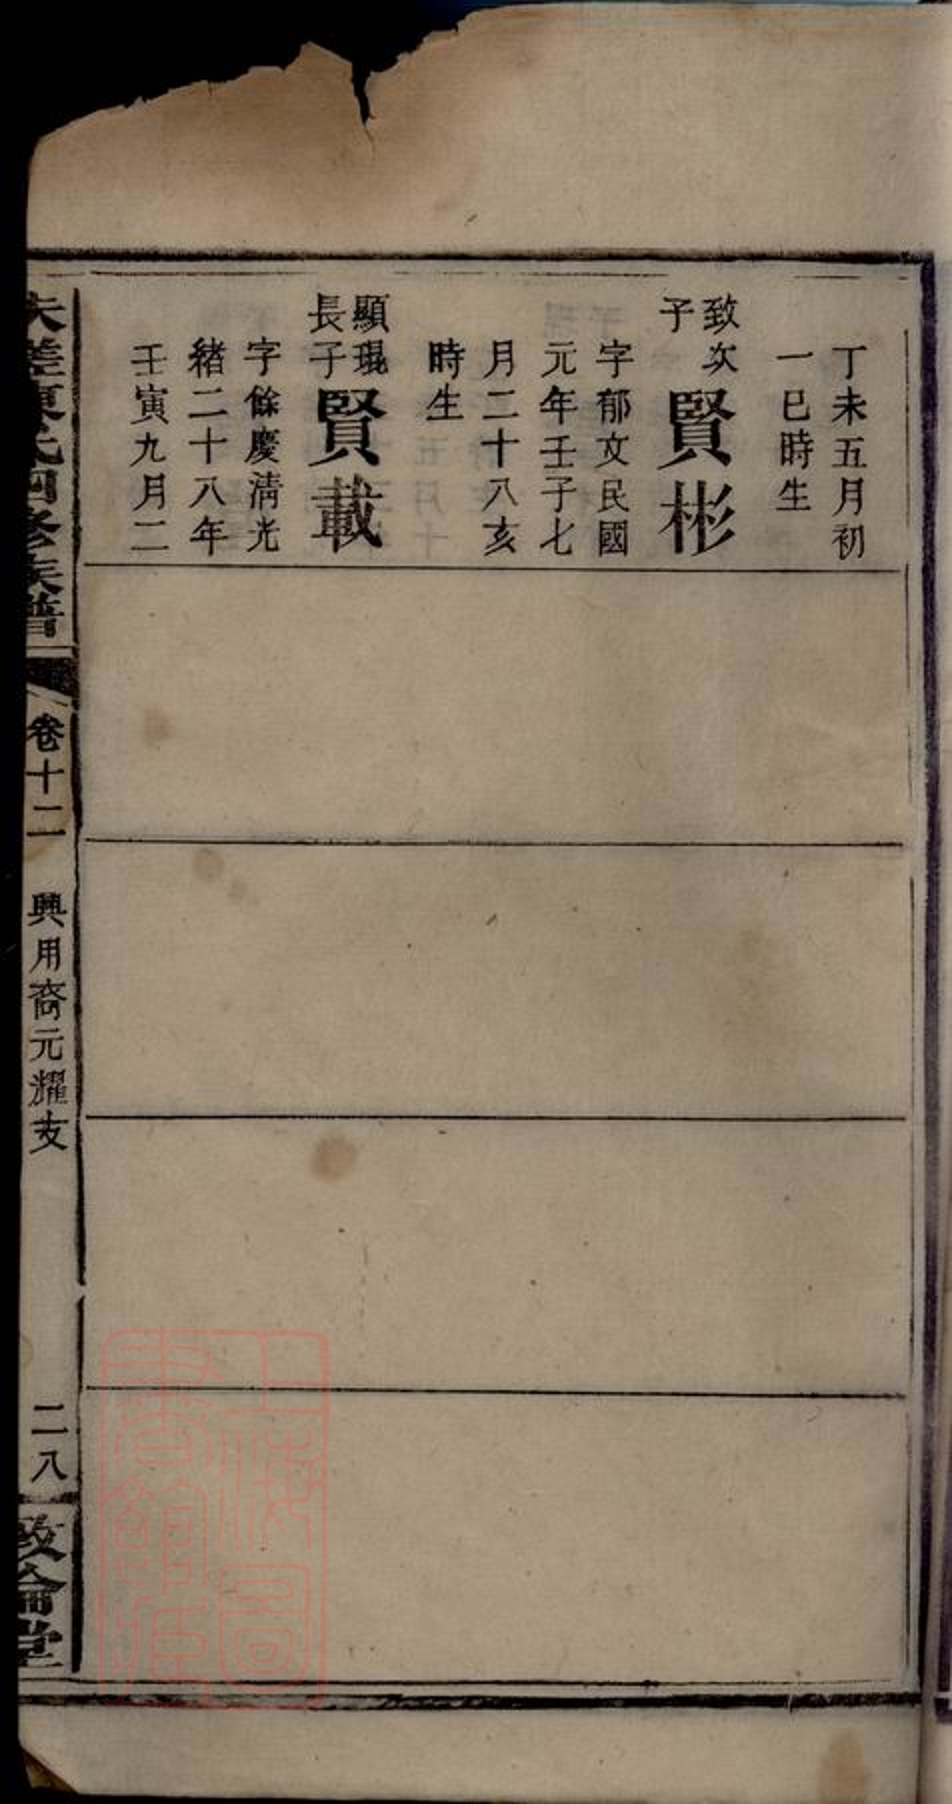 丁未五月初
一巳時生
致次
子
賢彬
字郁文民國
元年壬子七
月二十八亥
時生
顯琨
長子
賢載
字餘慶清光
緒二十八年
壬寅九月二
夫差東氏四修族譜
卷十二
興用裔元耀支
二八
敦倫堂
上海圖
書館藏